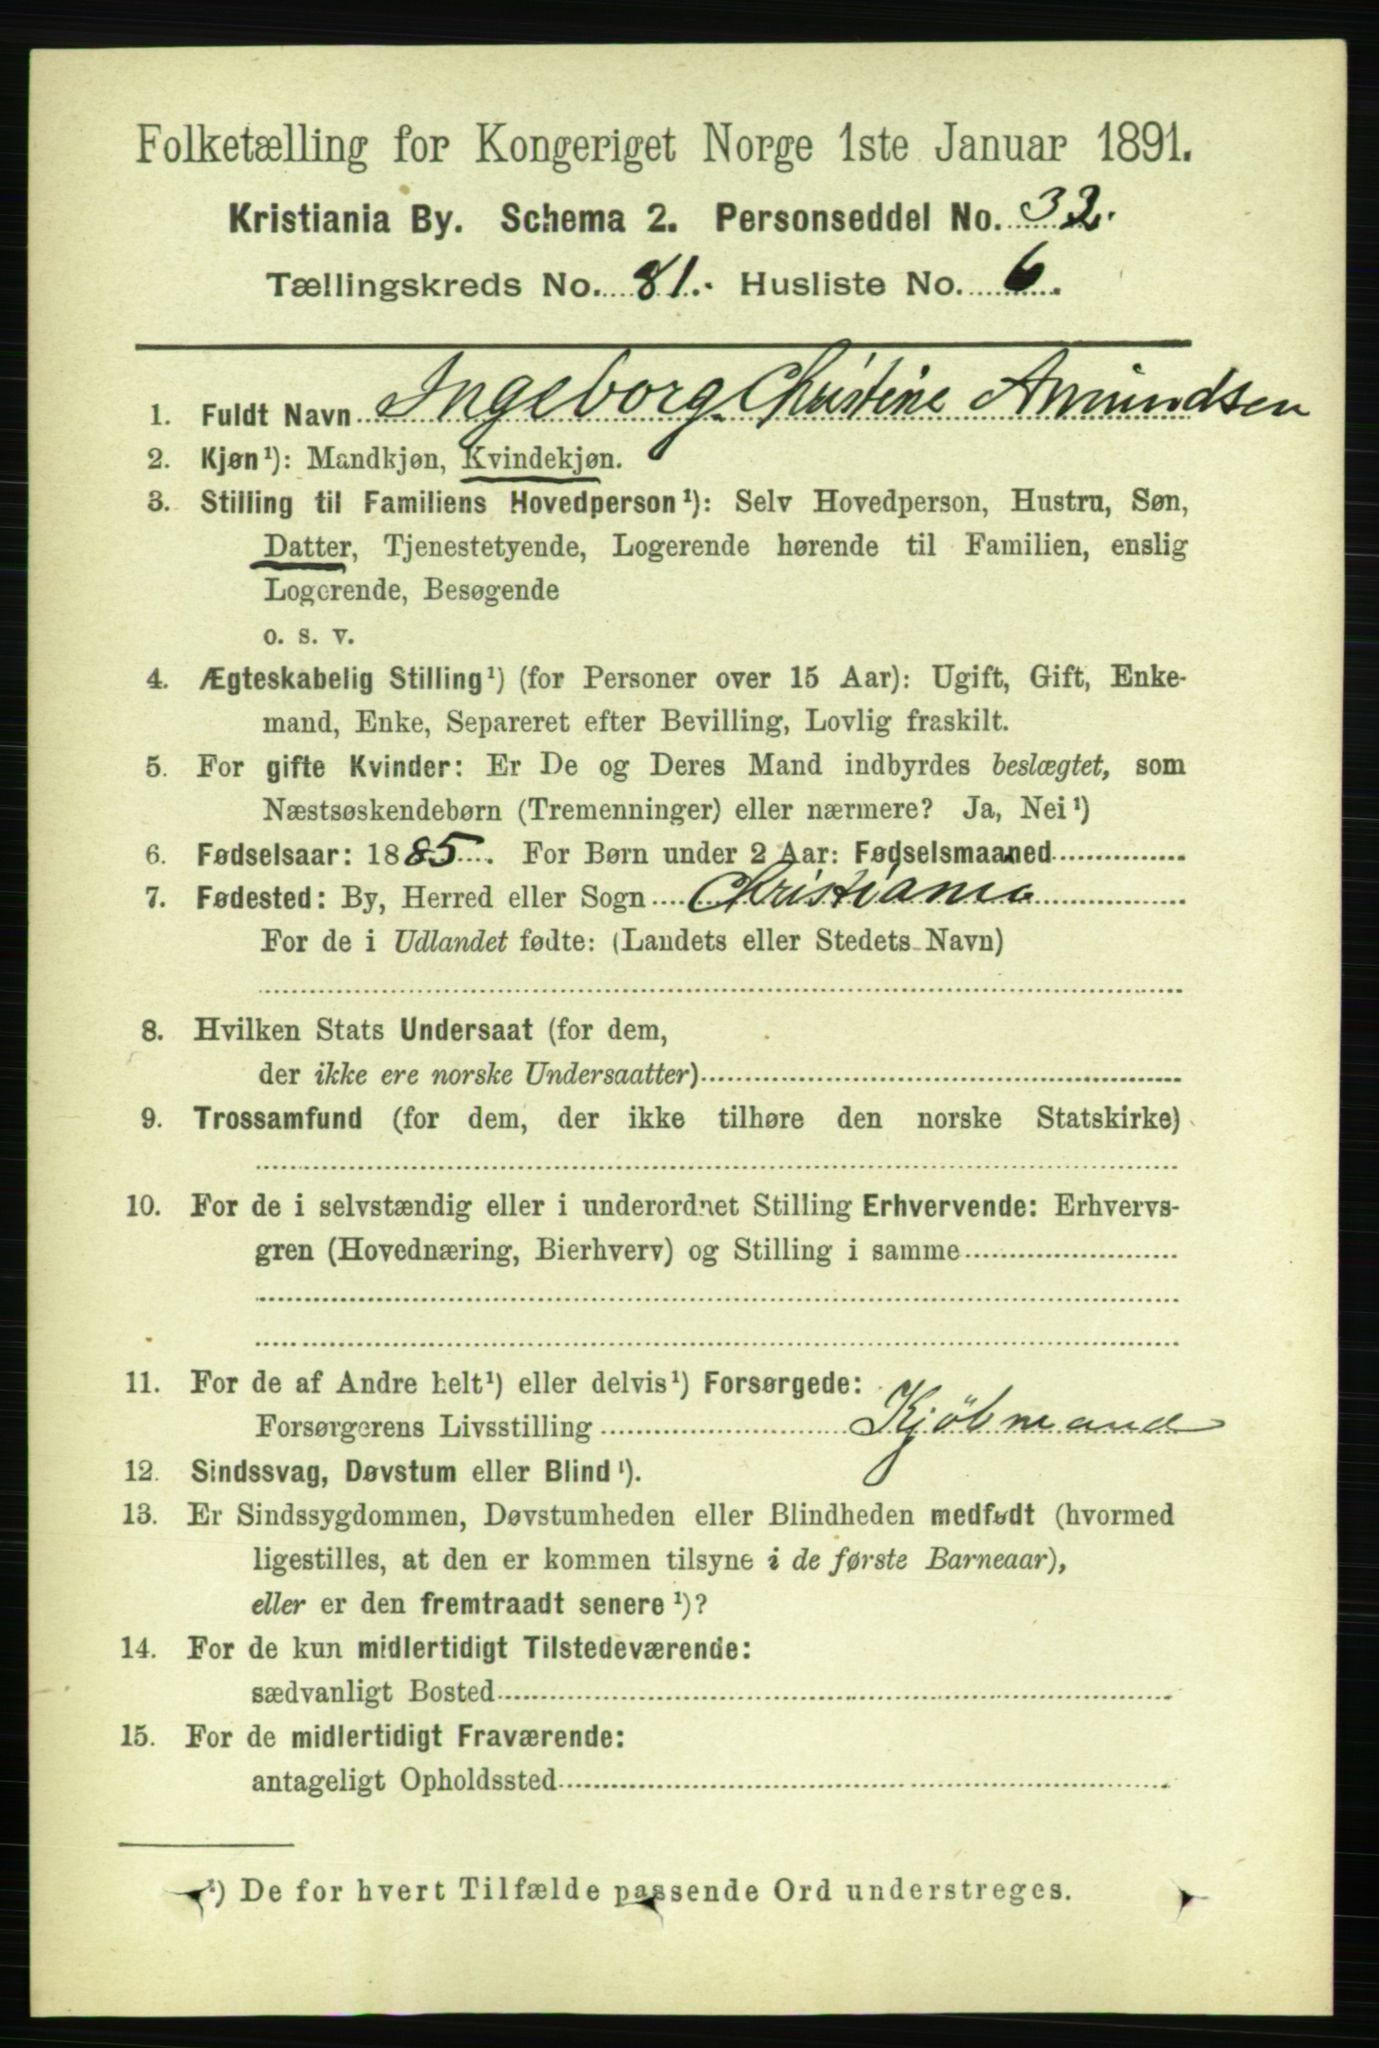 Folketælling for Kongeriget Norge 1ste Januar 1891.
Kristiania By. Schema 2. Personseddel No. 32.
Tællingskreds No. 81. Husliste No. 6.
1. Fuldt Navn Ingeborg Christine Amundsen
2. Kjøn¹): Mandkjøn, Kvindekjøn.
3. Stilling til Familiens Hovedperson¹): Selv Hovedperson, Hustru, Søn,
Datter, Tjenestetyende, Logerende hørende til Familien, enslig
Logerende, Besøgende
o. s. v.
4. Ægteskabelig Stilling¹) (for Personer over 15 Aar): Ugift, Gift, Enke-
mand, Enke, Separeret efter Bevilling, Lovlig fraskilt.
5. For gifte Kvinder: Er De og Deres Mand indbyrdes beslægtet, som
Næstsøskendebørn (Tremenninger) eller nærmere? Ja, Nei¹)
6. Fødselsaar: 1885. For Børn under 2 Aar: Fødselsmaaned
7. Fødested: By, Herred eller Sogn Christiania
For de i Udlandet fødte: (Landets eller Stedets Navn)
8. Hvilken Stats Undersaat (for dem,
der ikke ere norske Undersaatter)
9. Trossamfund (for dem, der ikke tilhøre den norske Statskirke)
10. For de i selvstændig eller i underordnet Stilling Erhvervende: Erhvervs-
gren (Hovednæring, Bierhverv) og Stilling i samme
11. For de af Andre helt¹) eller delvis¹) Forsørgede:
Forsørgerens Livsstilling Kjöbmand
12. Sindssvag, Døvstum eller Blind¹).
13. Er Sindssygdommen, Døvstumheden eller Blindheden medfødt (hvormed
ligestilles, at den er kommen tilsyne i de første Barneaar),
eller er den fremtraadt senere¹)?
14. For de kun midlertidigt Tilstedeværende:
sædvanligt Bosted
15. For de midlertidigt Fraværende:
antageligt Opholdssted
¹) De for hvert Tilfælde passende Ord understreges.